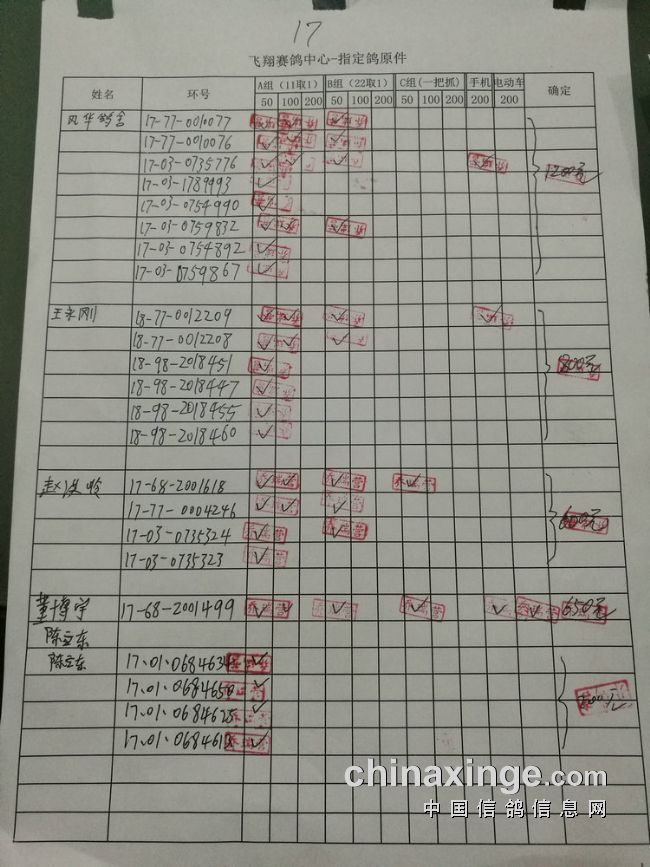 17
飞翔赛鸽中心-指定鸽原件
姓名 环号 A组（11取1） B组（22取1） C组(一把抓) 手机 电动车 确定
50 100 200 50 100 200 50 100 200 200 200
风华鸽舍 17-77-0010077
17-77-0010076
17-03-0735776 1200元
17-03-1789993
17-03-0754990
17-03-0759832
17-03-0754892
17-03-0759867
王永刚 18-77-0012209
18-77-0012208
18-98-2018451 800元
18-98-2018447
18-98-2018455
18-98-2018460
17-68-2001618
17-77-0004246
17-03-0735324 600元
17-03-0735323
董博宇 17-68-2001499 650元
陈立东
陈立东 17.01.0684634
17.01.0684650
17.01.0684625
17.01.0684618
chinaxinge.com
中国信鸽信息网